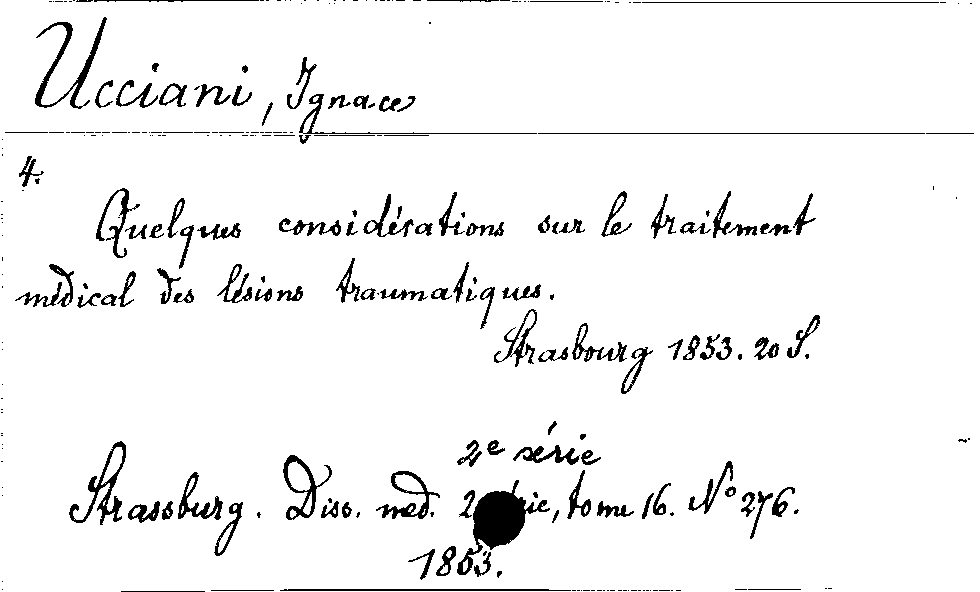 Ucciani, Ignace
4.
Quelques considérations sur le traitement
médical des lésions traumatiques.
Strasbourg 1853. 20 S.
2e série
Strassburg. Diss. med. 2 série, tome 16. No 276.
1853.